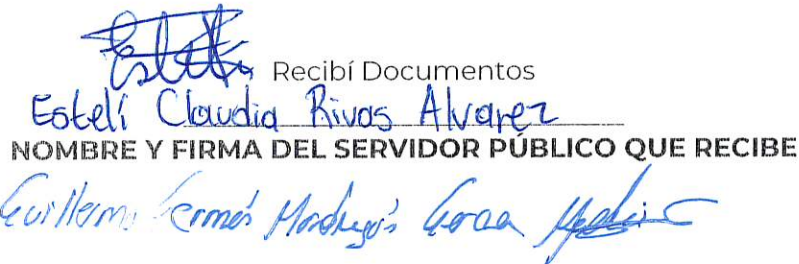 Recibí Documentos
Estelí Claudia Rivas Alvarez
NOMBRE Y FIRMA DEL SERVIDOR PÚBLICO QUE RECIBE
Guillermo